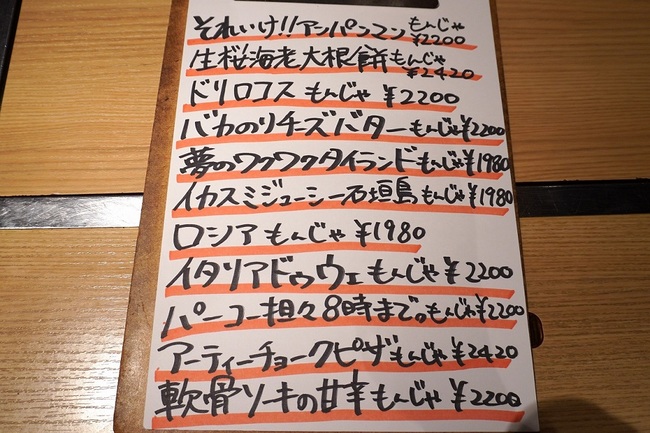 それいけ!!アンパンマンもんじゃ ¥2200
生桜海老大根餅もんじゃ ¥2420
ドリロコス もんじゃ ¥2200
バカのりチーズバターもんじゃ¥2200
夢のワクワクタイランドもんじゃ¥1980
イカスミジューシー石垣島もんじゃ¥1980
ロシアもんじゃ¥1980
イタリアドゥウェもんじゃ¥2200
パーコー担々8時まで。もんじゃ¥2200
アーティーチョークピザもんじゃ¥2420
軟骨ソーキの甘辛もんじゃ¥2200